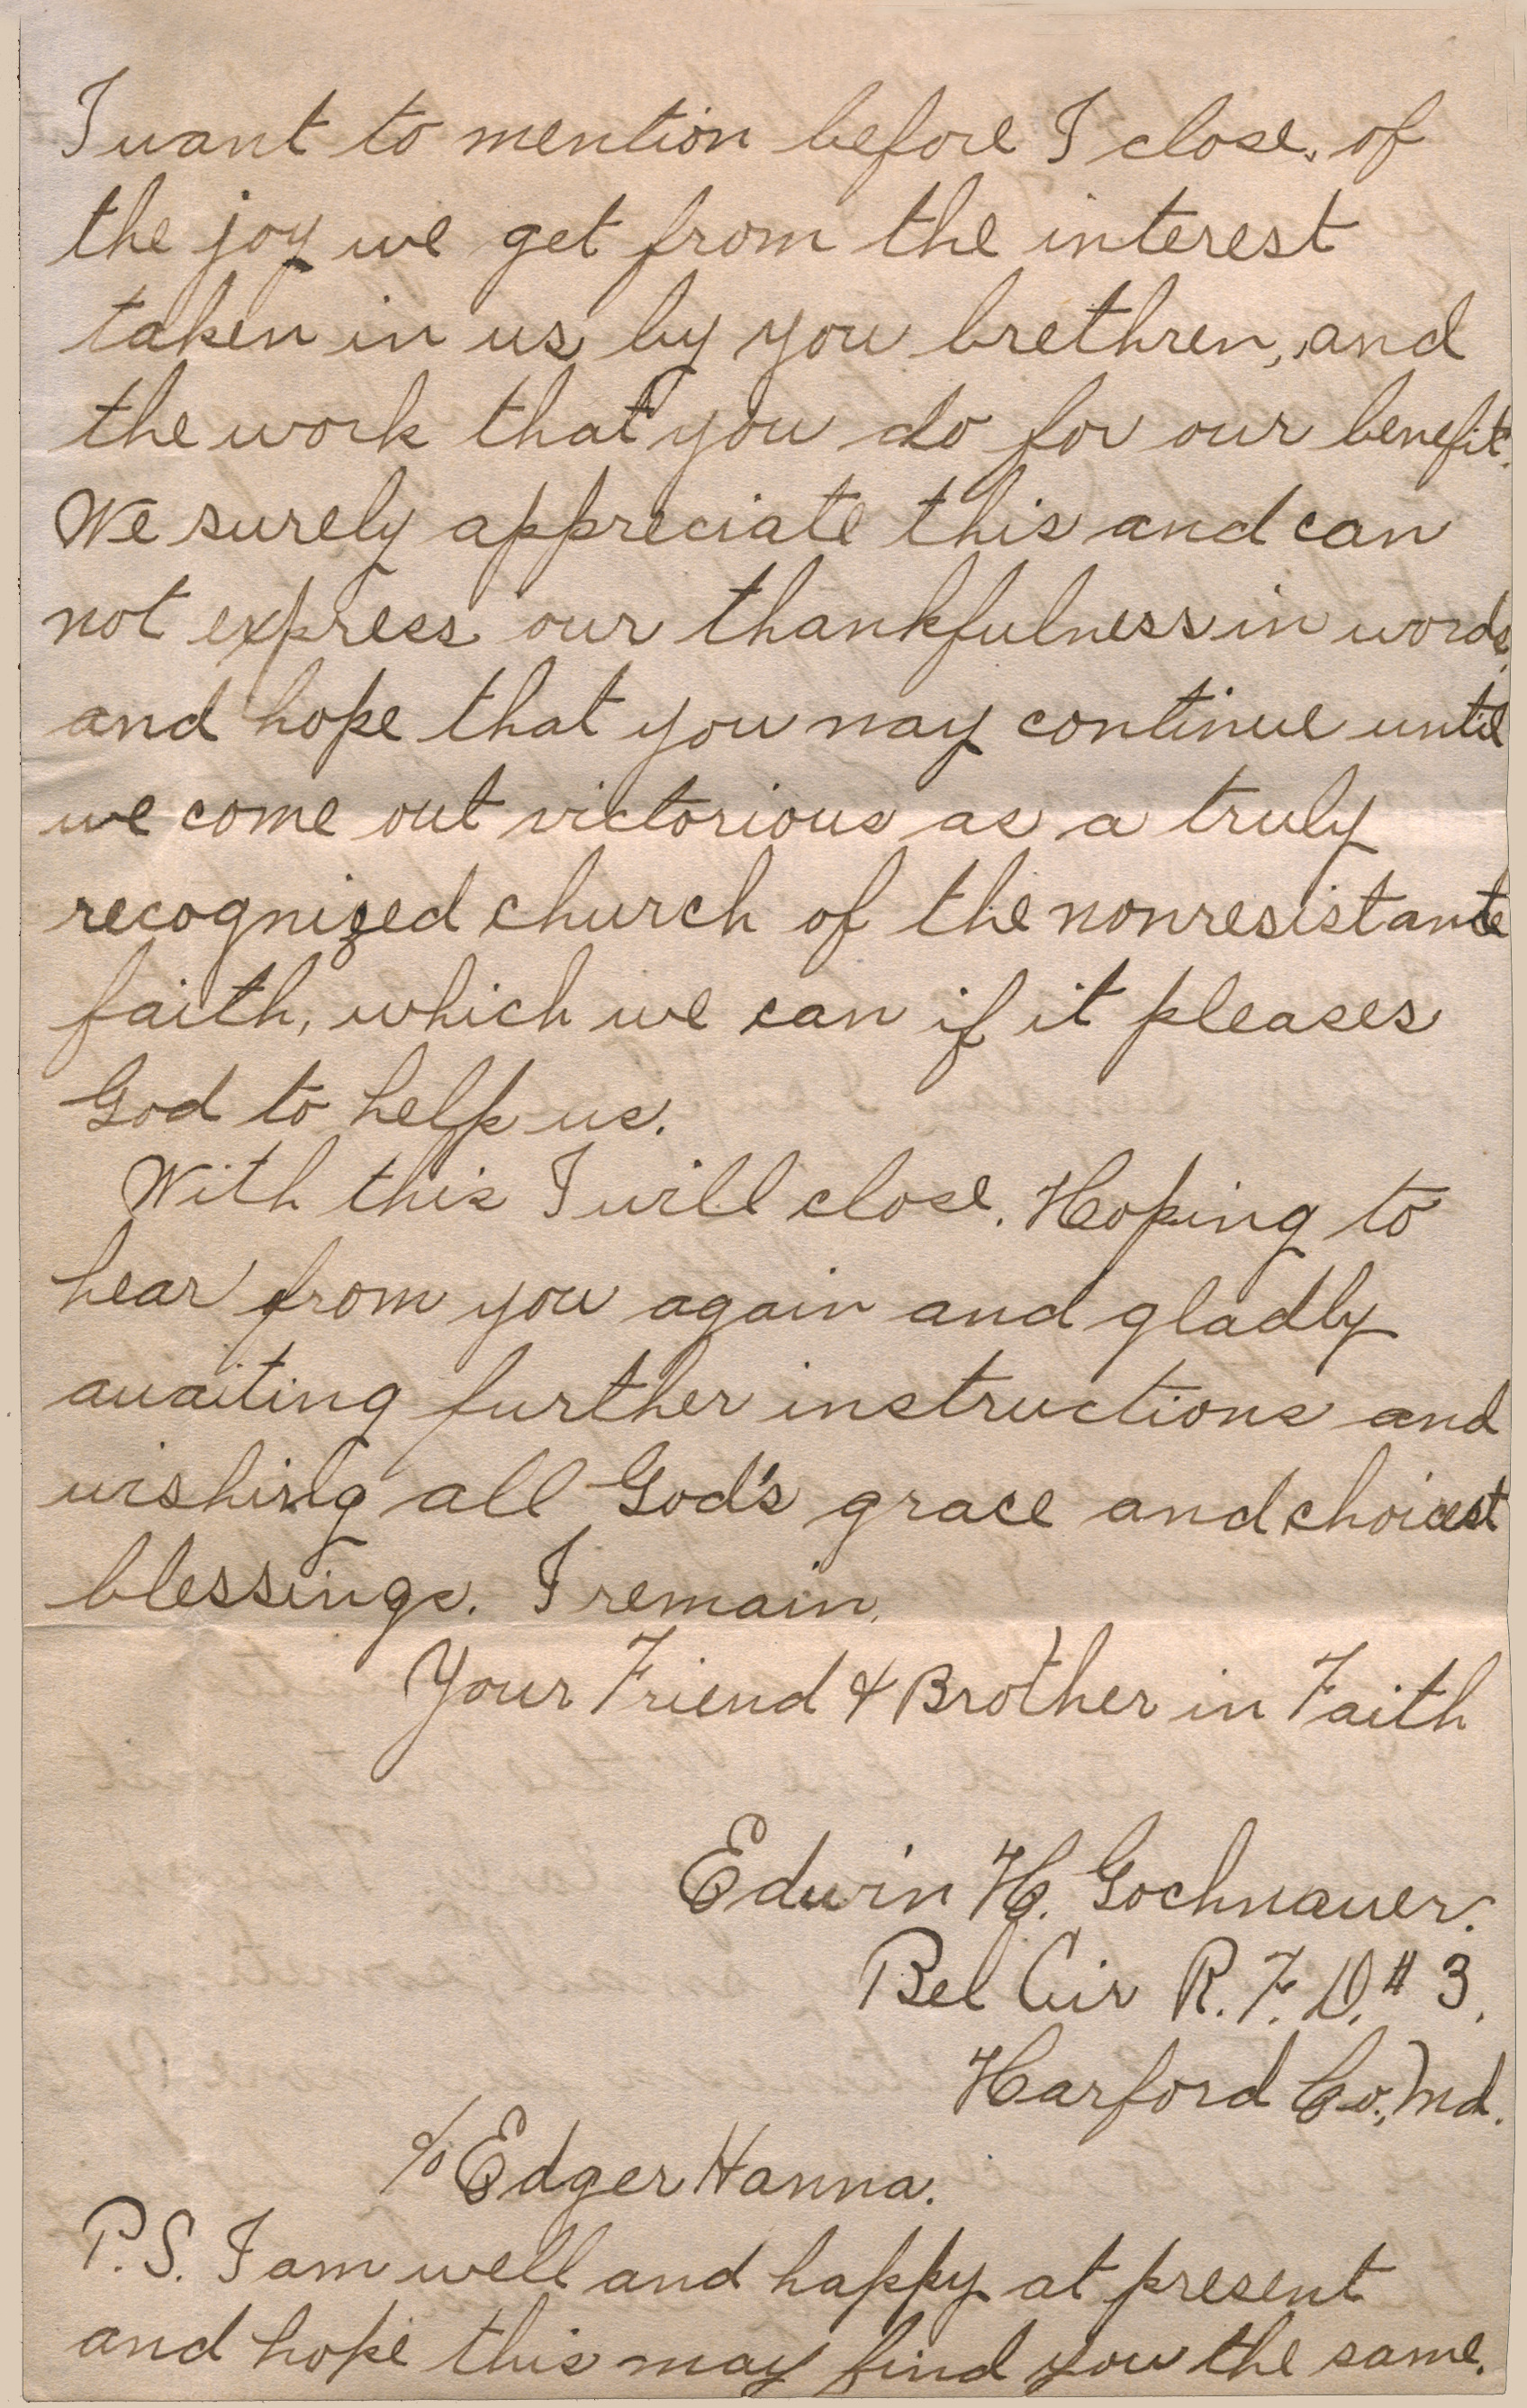 I want to mention before I close, of
the joy we get from the interest
taken in us by you brethren, and
the work that you do for our benefit.
We surely appreciate this and can
not express our thankfulness in words,
and hope that you may continue until
we come out victorious as a truly
recognized church of the nonresistante
faith, which we can if it pleases
God to help us.
With this I will close. Hoping to
hear from you again and gladly
awaiting further instructions and
wishing all God's grace and choicest
blessings. I remain,
Your Friend & Brother in Faith
Edwin H. Gochnauer.
Bel Air R.F.D. # 3.
Harford Co., Md.
c/o Edger Hanna.
P.S. I am well and happy at present
and hope this may find you the same.